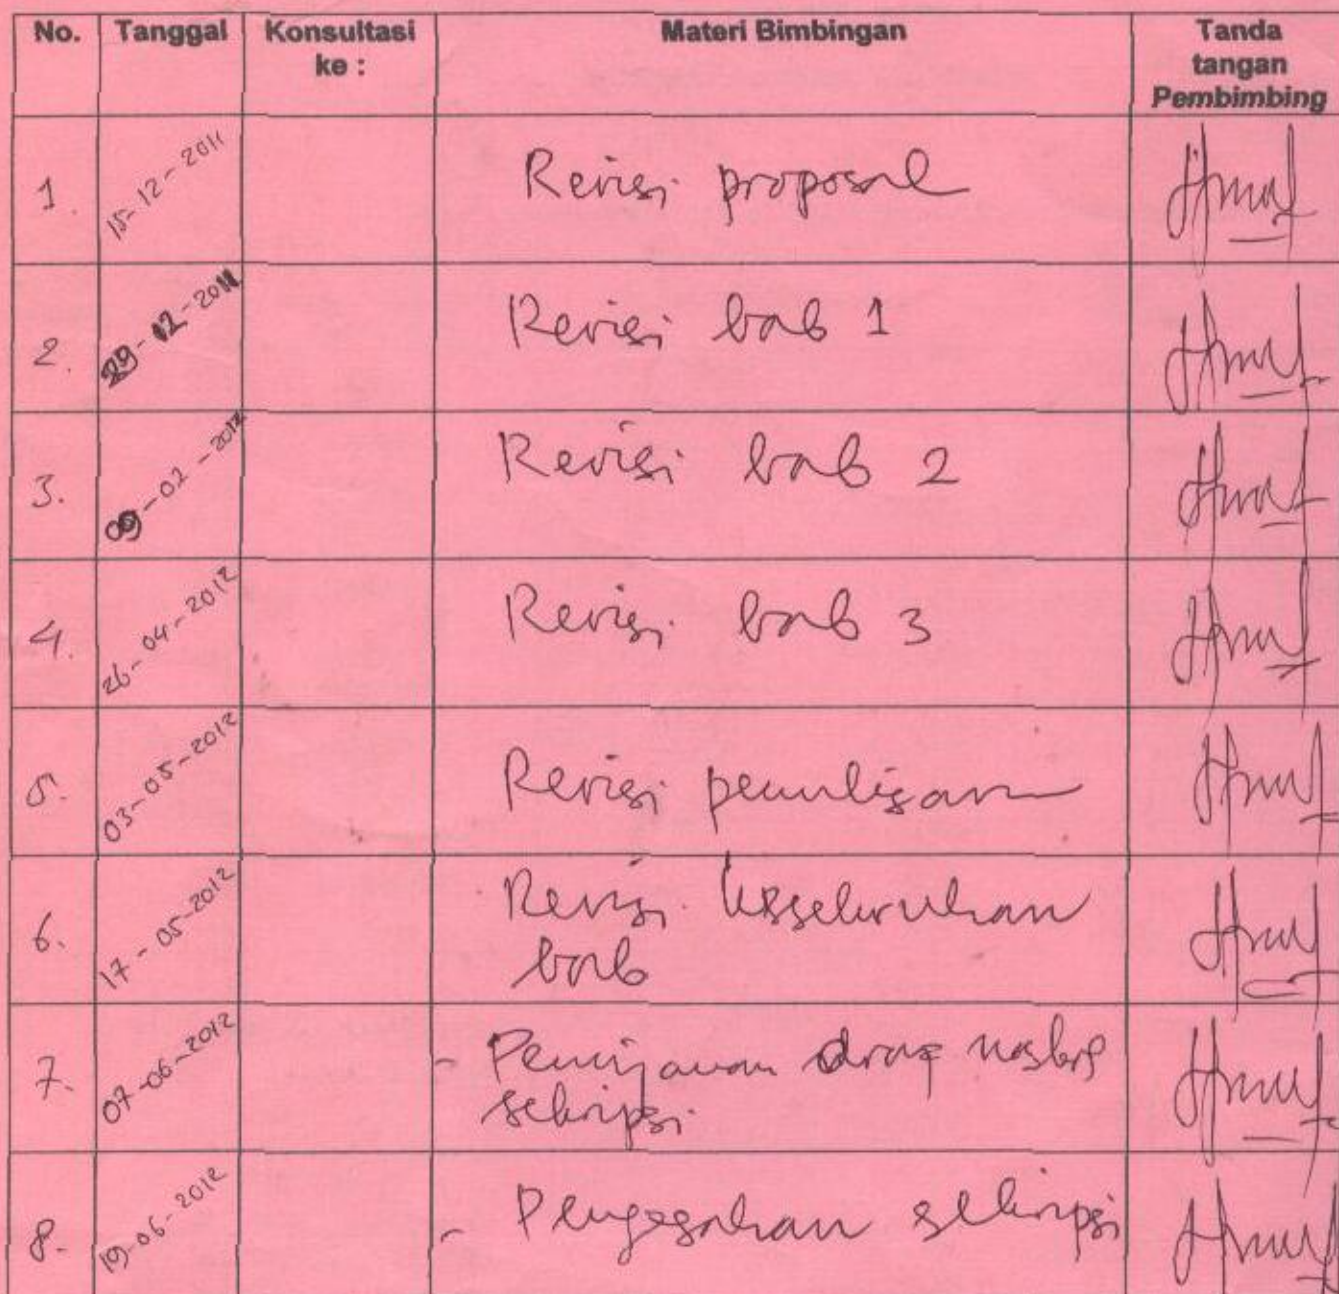 No. Tanggal Konsultasi ke : Materi Bimbingan Tanda tangan Pembimbing
1. 15-12-2011 Revisi proposal
2. 29-12-2011 Revisi bab 1
3. 09-02-2012 Revisi bab 2
4. 26-04-2012 Revisi bab 3
5. 03-05-2012 Revisi penulisan
6. 17-05-2012 Revisi keseluruhan
bab
7. 07-06-2012 - Peninjauan draf naskip
sekripsi
8. 19-06-2012 - Pengesahan sekripsi